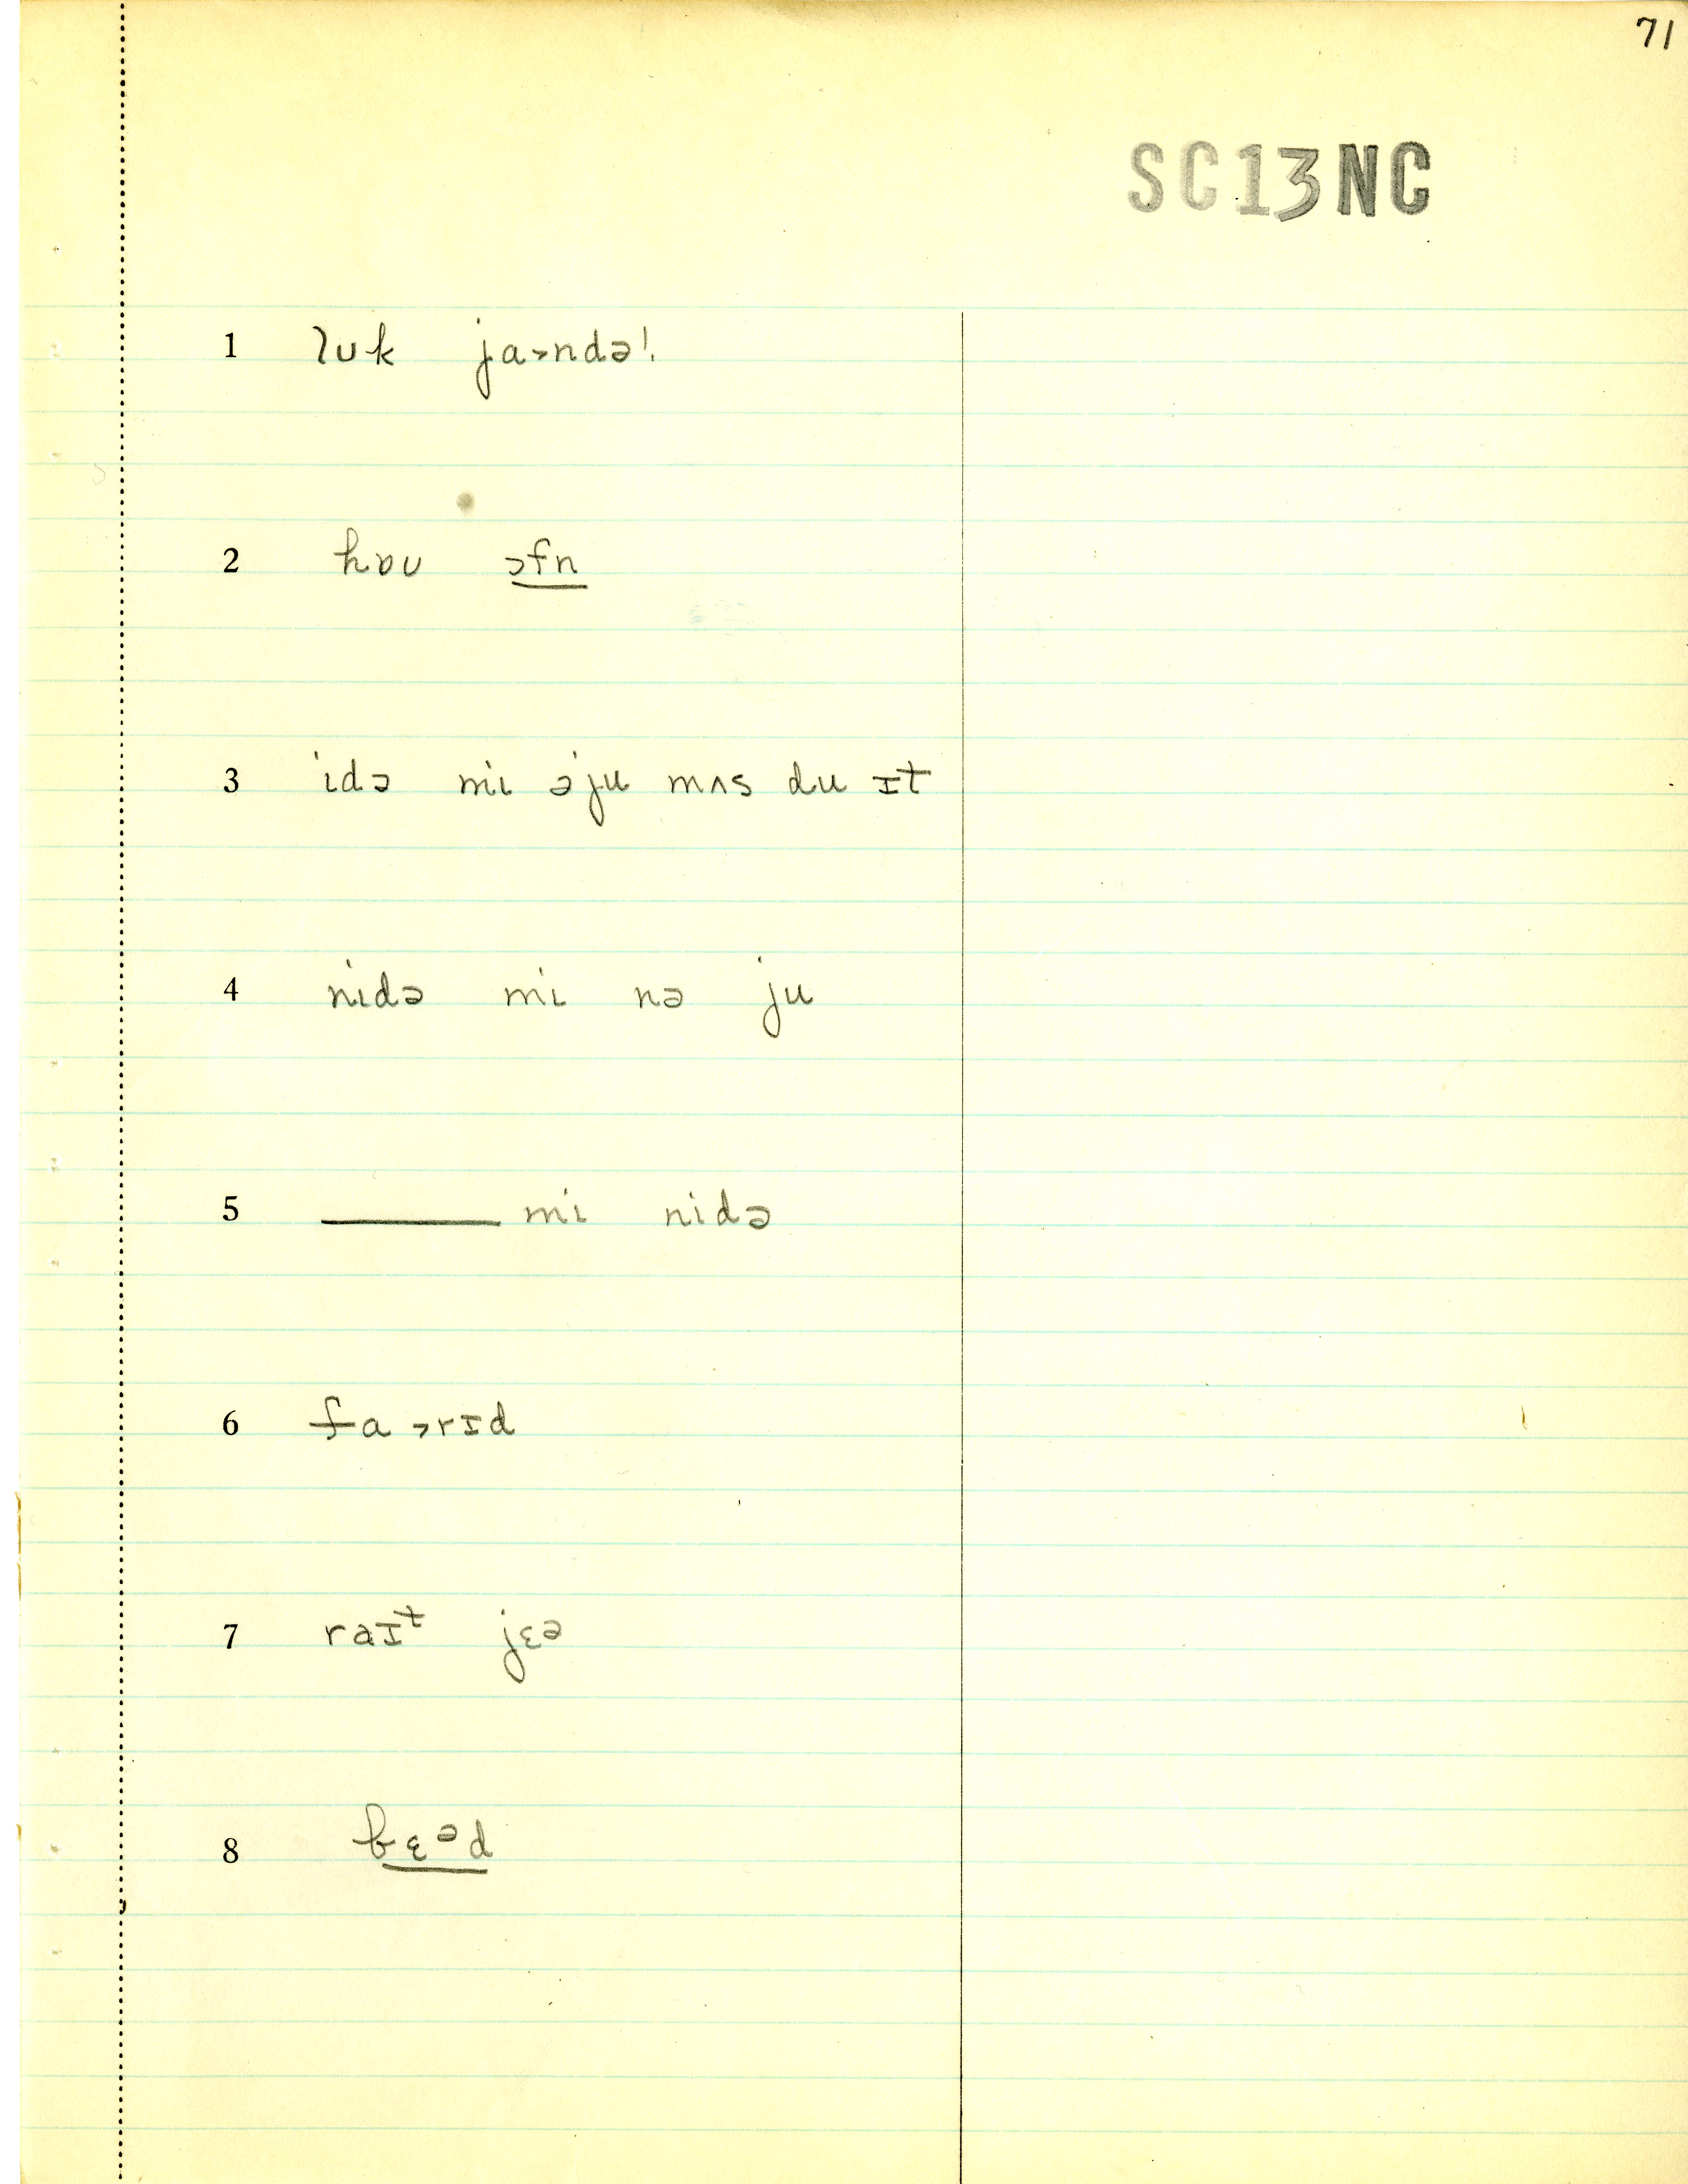 71
SC13NC
1 lʊk jaɔndə!
2 hɒʊ ɔfn
3 idə mi əju mʌs du ɪt
4 nidə mi nə ju
5 ______ mi nidə
6 faɔrɪd
7 raɪt jɛə
8 bɛəd